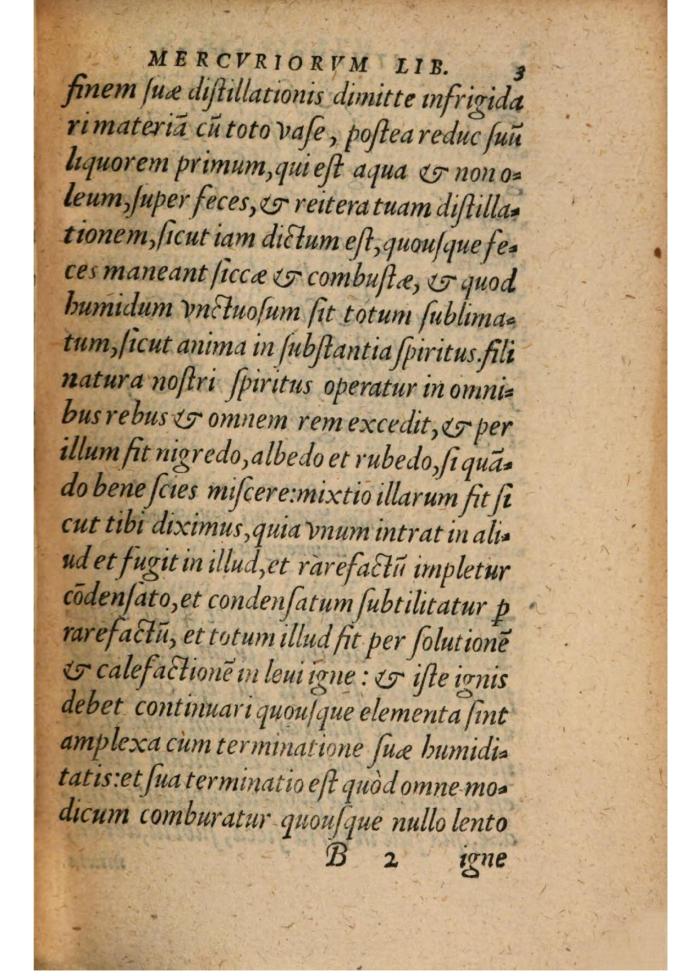 MERCVRIORVM LIB. 3
finem ſuæ diſtillationis dimitte infrigida
ri materiā cū toto vaſe, poſtea reduc ſuū
liquorem primum, qui eſt aqua & non o-
leum, ſuper feces, & reitera tuam diſtilla-
tionem, ſicut iam dictum eſt, quouſque fe-
ces maneant ſiccæ & combuſtæ, & quod
humidum vnctuoſum ſit totum ſublima-
tum, ſicut anima in ſubſtantia ſpiritus. fili
natura noſtri ſpiritus operatur in omni-
bus rebus & omnem rem excedit, & per
illum fit nigredo, albedo et rubedo, ſi quā-
do bene ſcies miſcere: mixtio illarum fit ſi
cut tibi diximus, quia vnum intrat in ali-
ud et fugit in illud, et rarefactū impletur
cōdenſato, et condenſatum ſubtilitatur ꝑ
rarefactū, et totum illud fit per ſolutionē
& calefactionē in leui igne : & iſte ignis
debet continuari quouſque elementa ſint
amplexa cùm terminatione ſuæ humidi-
tatis: et ſua terminatio eſt quòd omne mo-
dicum comburatur quouſque nullo lento
B 2 igne